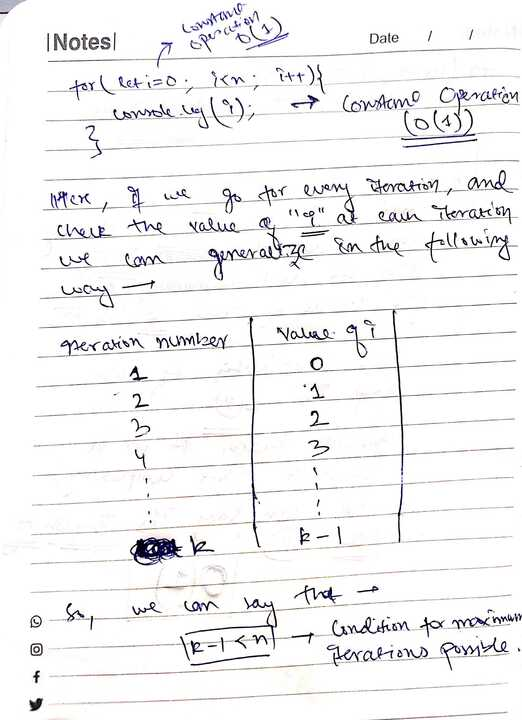 |Notes|
Constant
operation
O(1)
Date / /
for( let i=0; i<n; i++){
console.log(i); → Constant Operation
}
(O(1))
Here, if we go for every iteration, and
check the value of "i" at each iteration
we can generalize in the following
way →
Iteration number Value of i
1 0
2 1
3 2
4 3
k k-1
So, we can say that →
k-1<n → Condition for maximum
iterations possible.